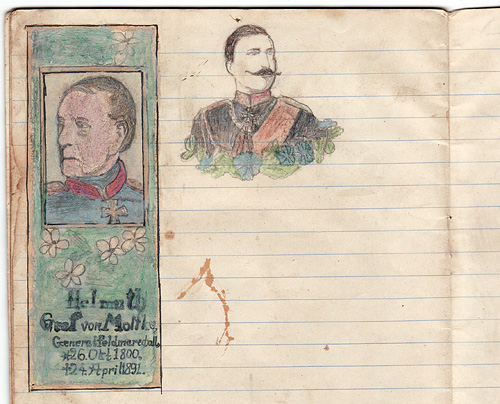 Helmuth
Graf von Moltke,
Generalfeldmarschall,
*26. Okt. 1800,
+24. April 1891.